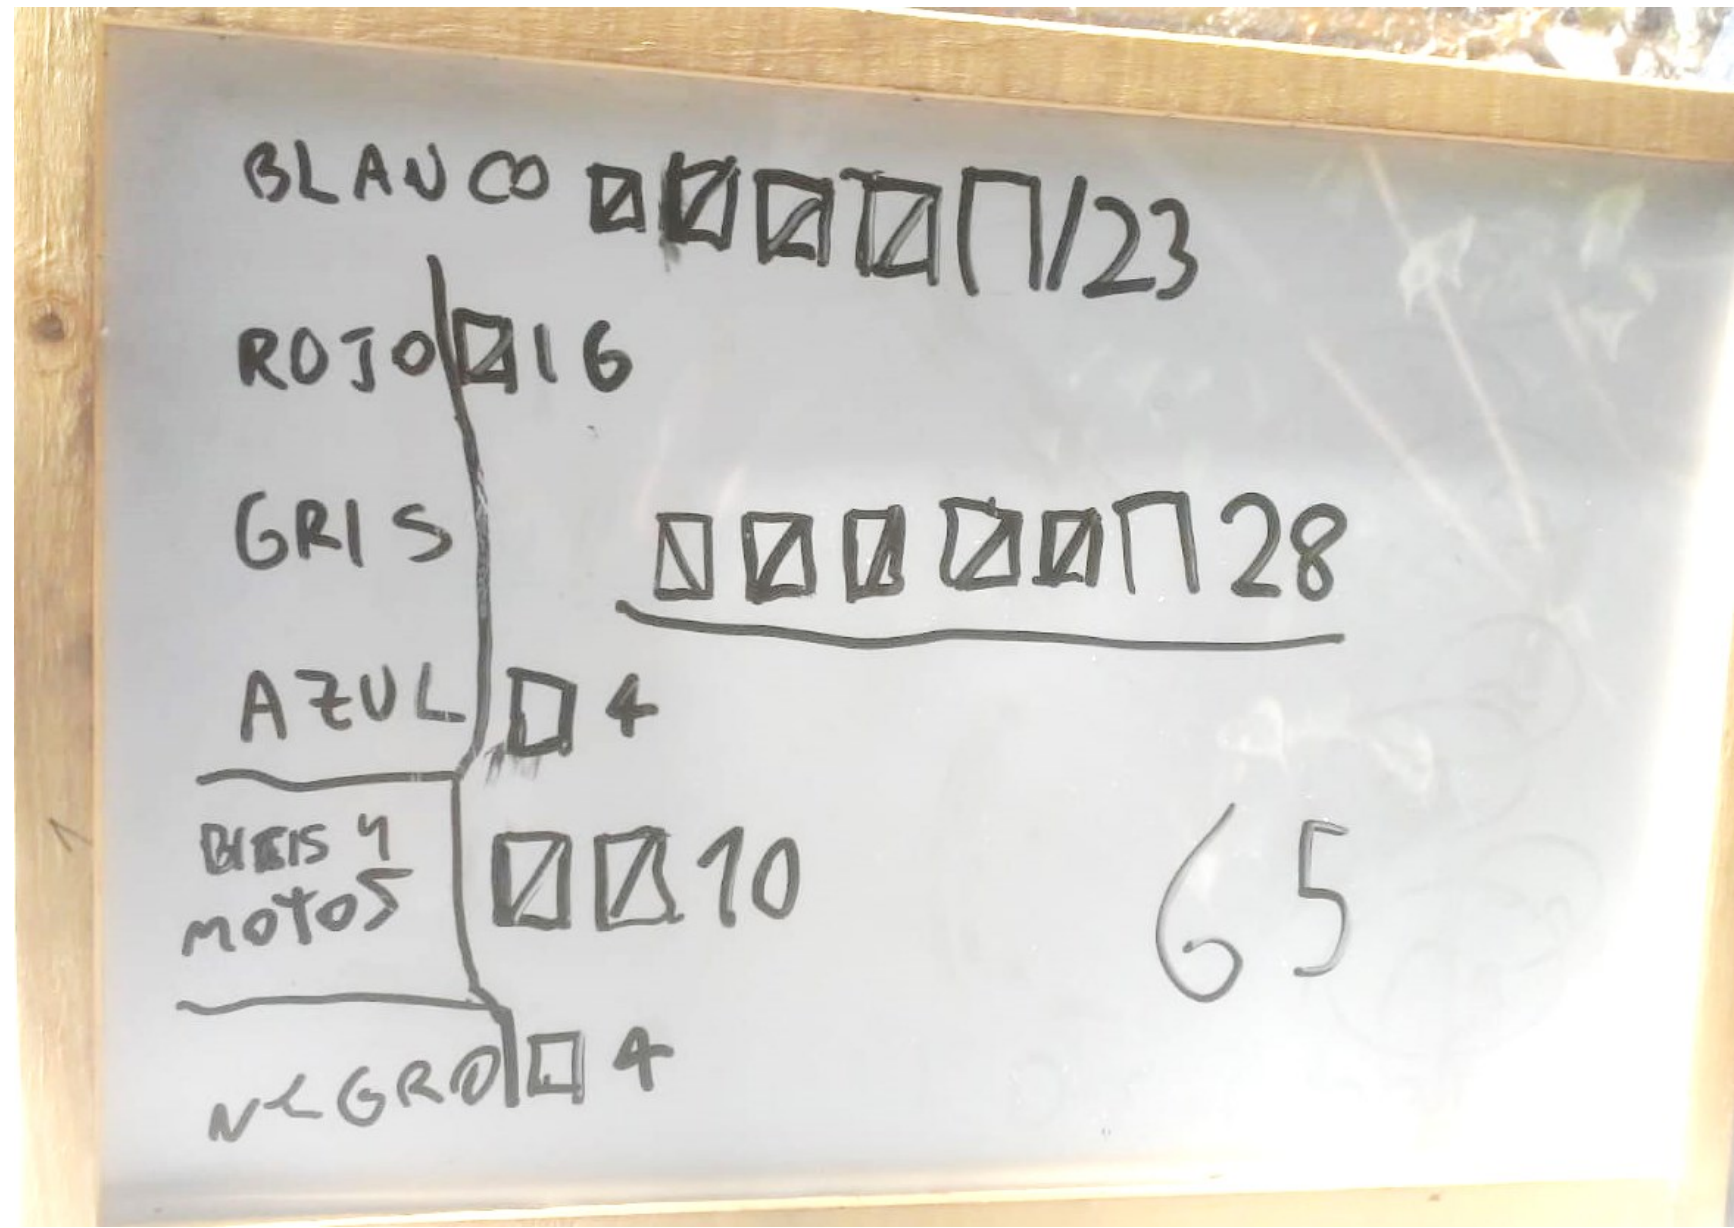 BLANCO /23
ROJO 1 6
GRIS 28
AZUL 4
BICIS Y
MOTOS 10
65
NEGRO 4